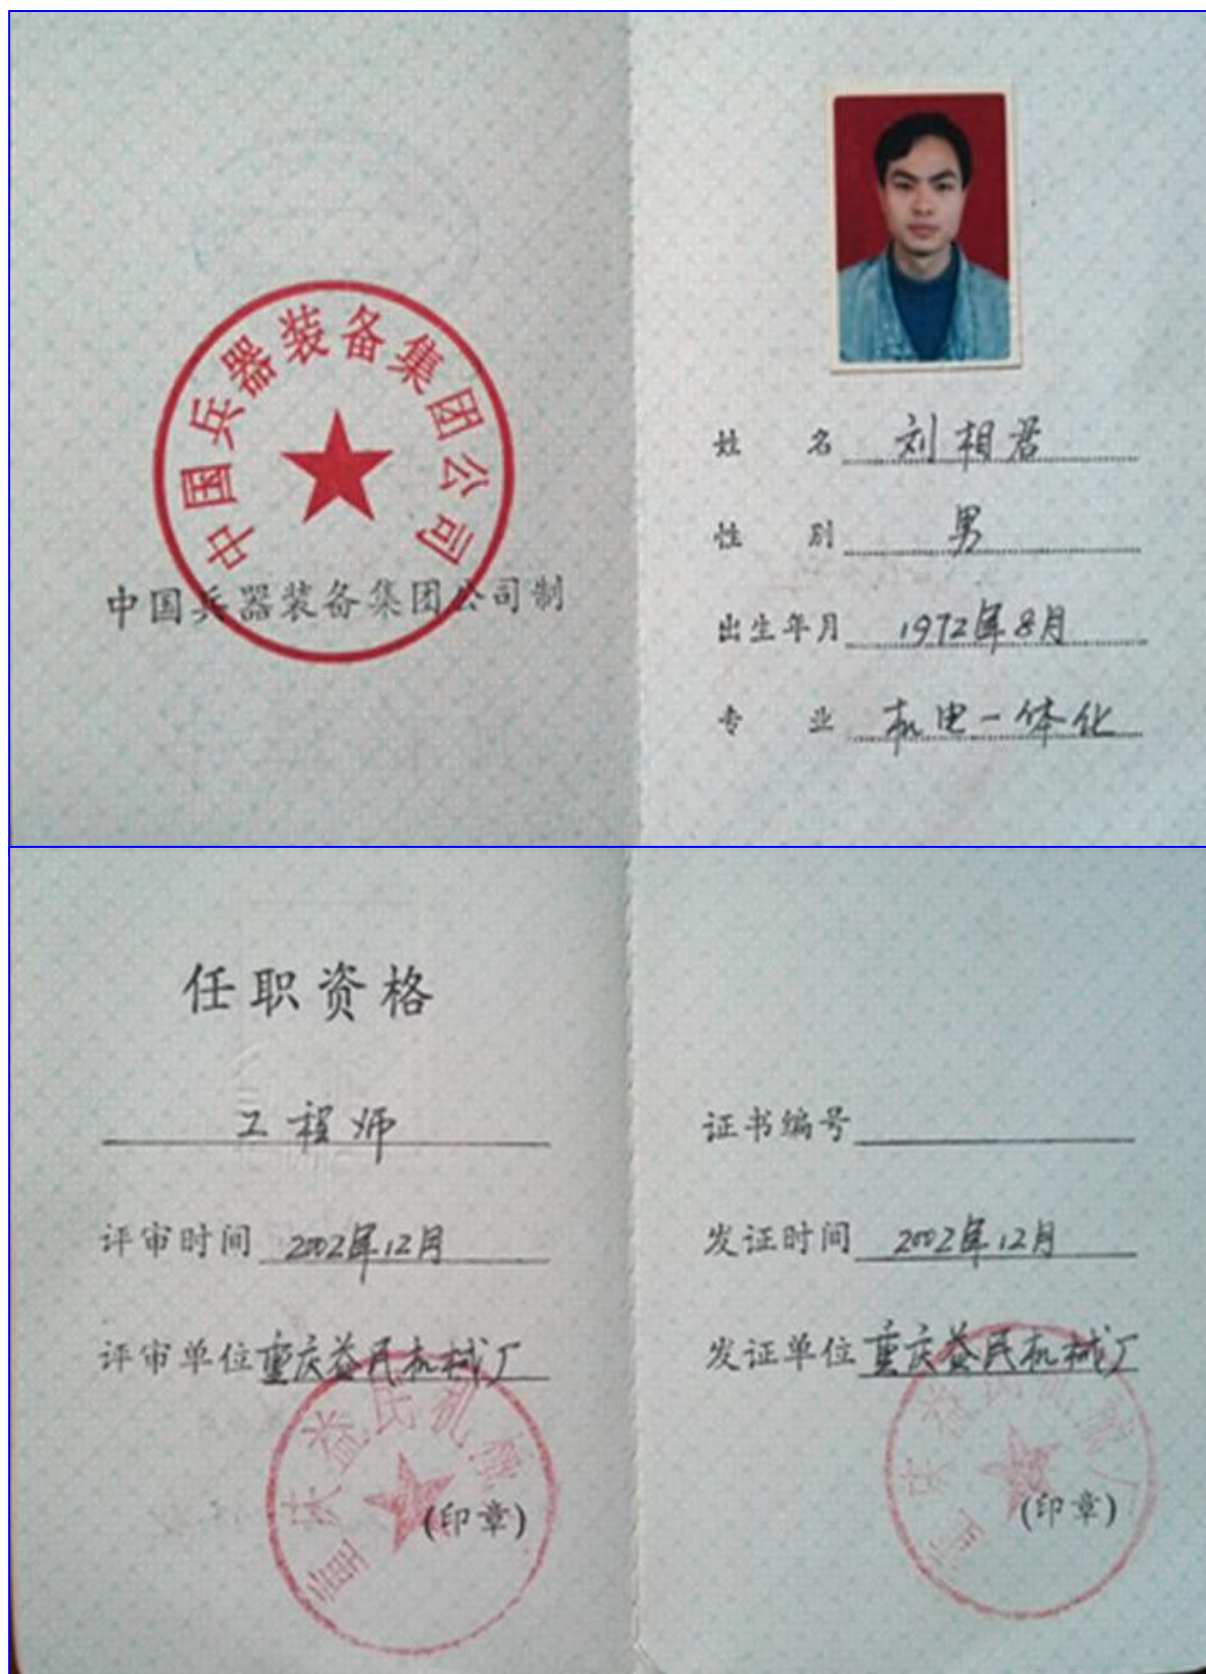 中国兵器装备集团公司
中国兵器装备集团公司制
姓 名 刘相君
性 别 男
出生年月 1972年8月
专 业 机电一体化
任职资格
工程师
评审时间 2002年12月
评审单位 重庆益民机械厂
重庆益民机械
(印章)
证书编号
发证时间 2002年12月
发证单位 重庆益民机械厂
重庆益民机械厂
(印章)